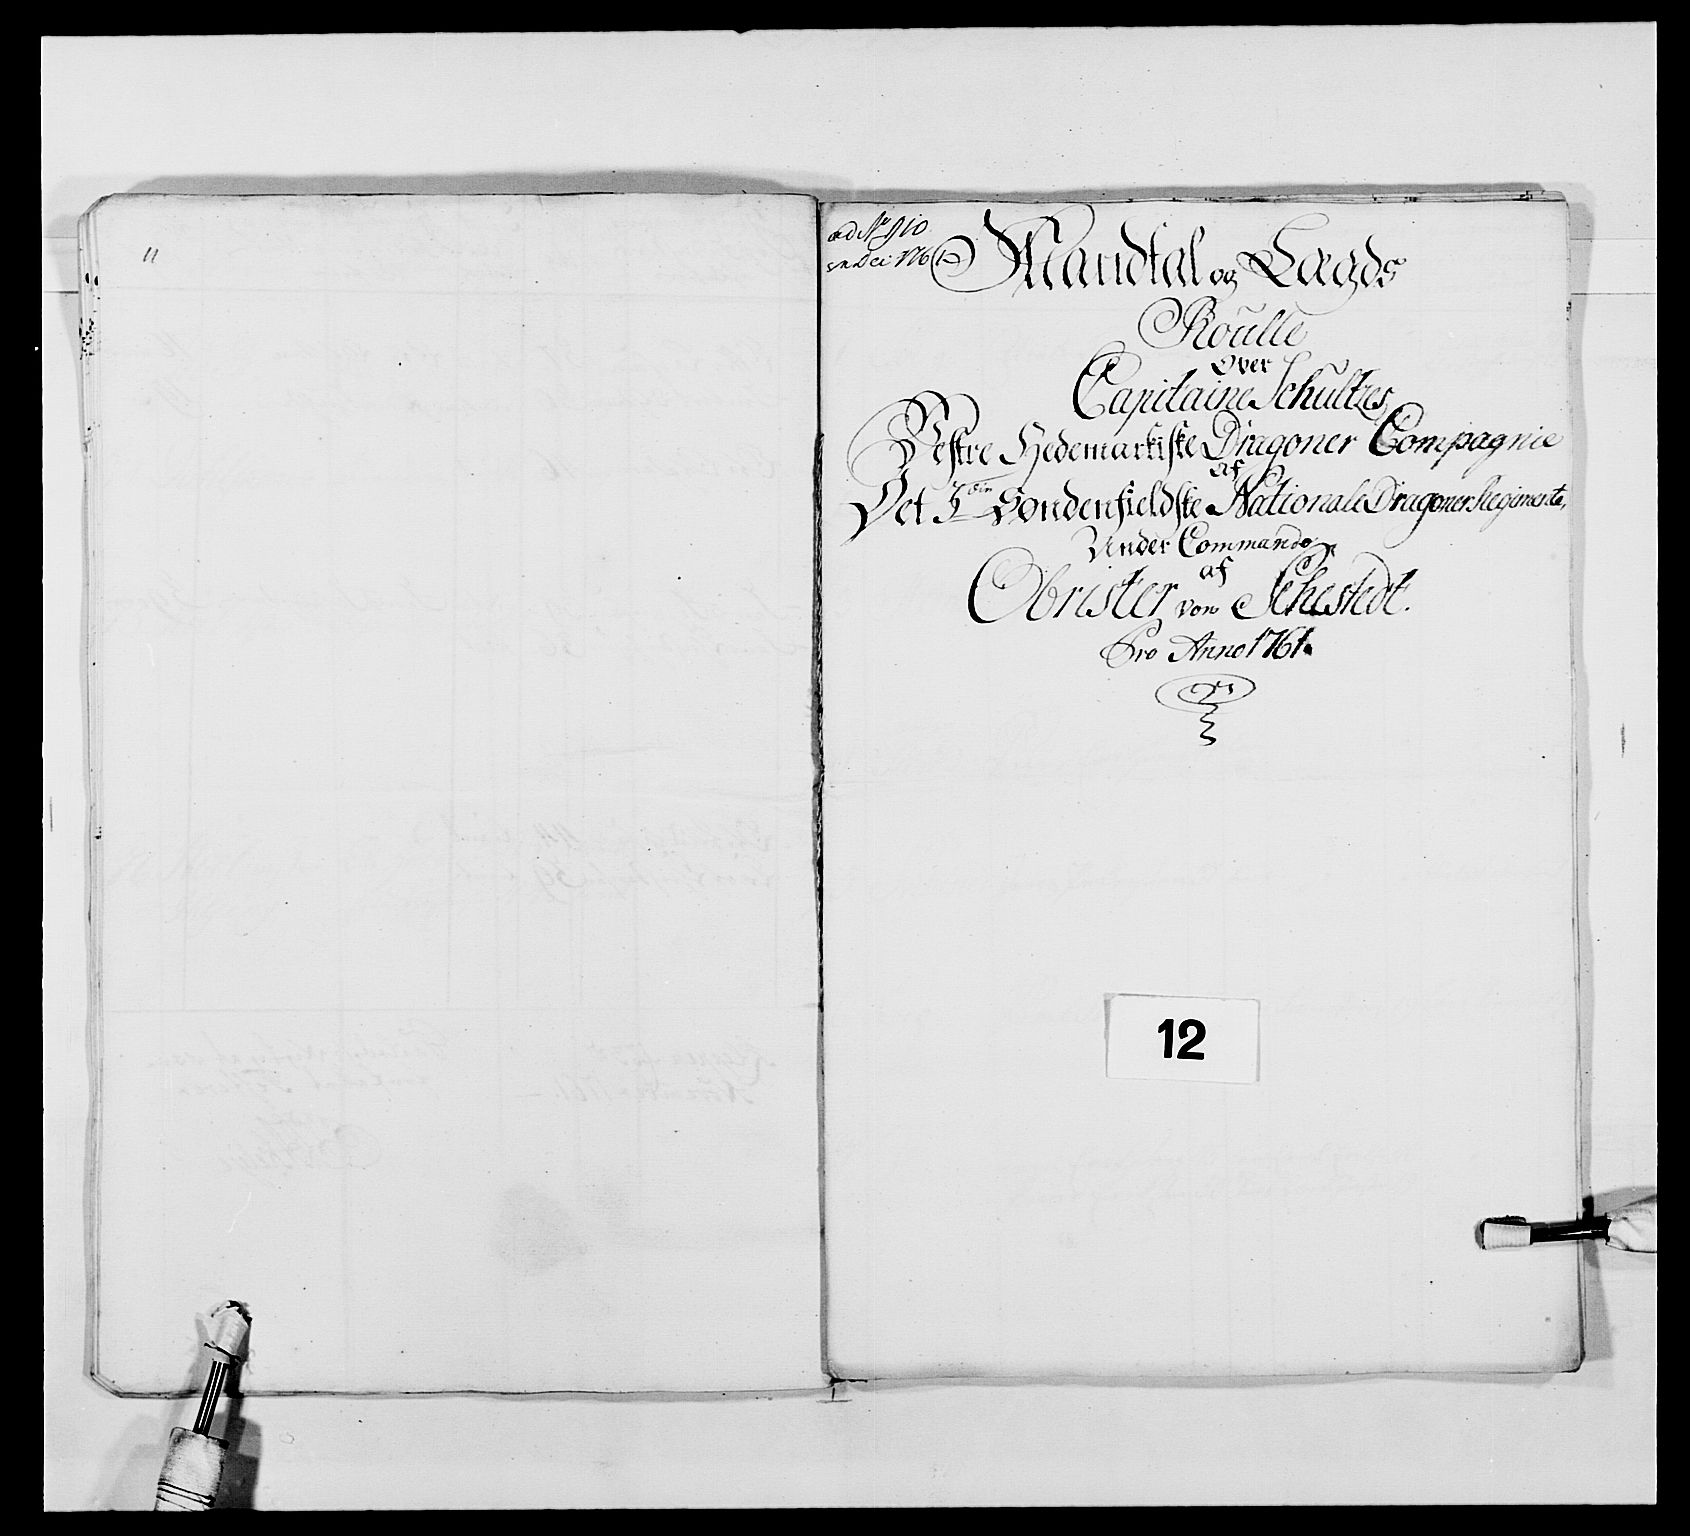 11
ad No 910
Mandtal og Lægds
Roulle
Over
Capitaine Schultzes
Vestre Hedemarkiske Dragoner Compagnie
af
Det 3die Søndenfieldske Nationale Dragoner Regimente,
Under Commando
af
Obrister von Sehestedt.
Pro Anno 1761.
12